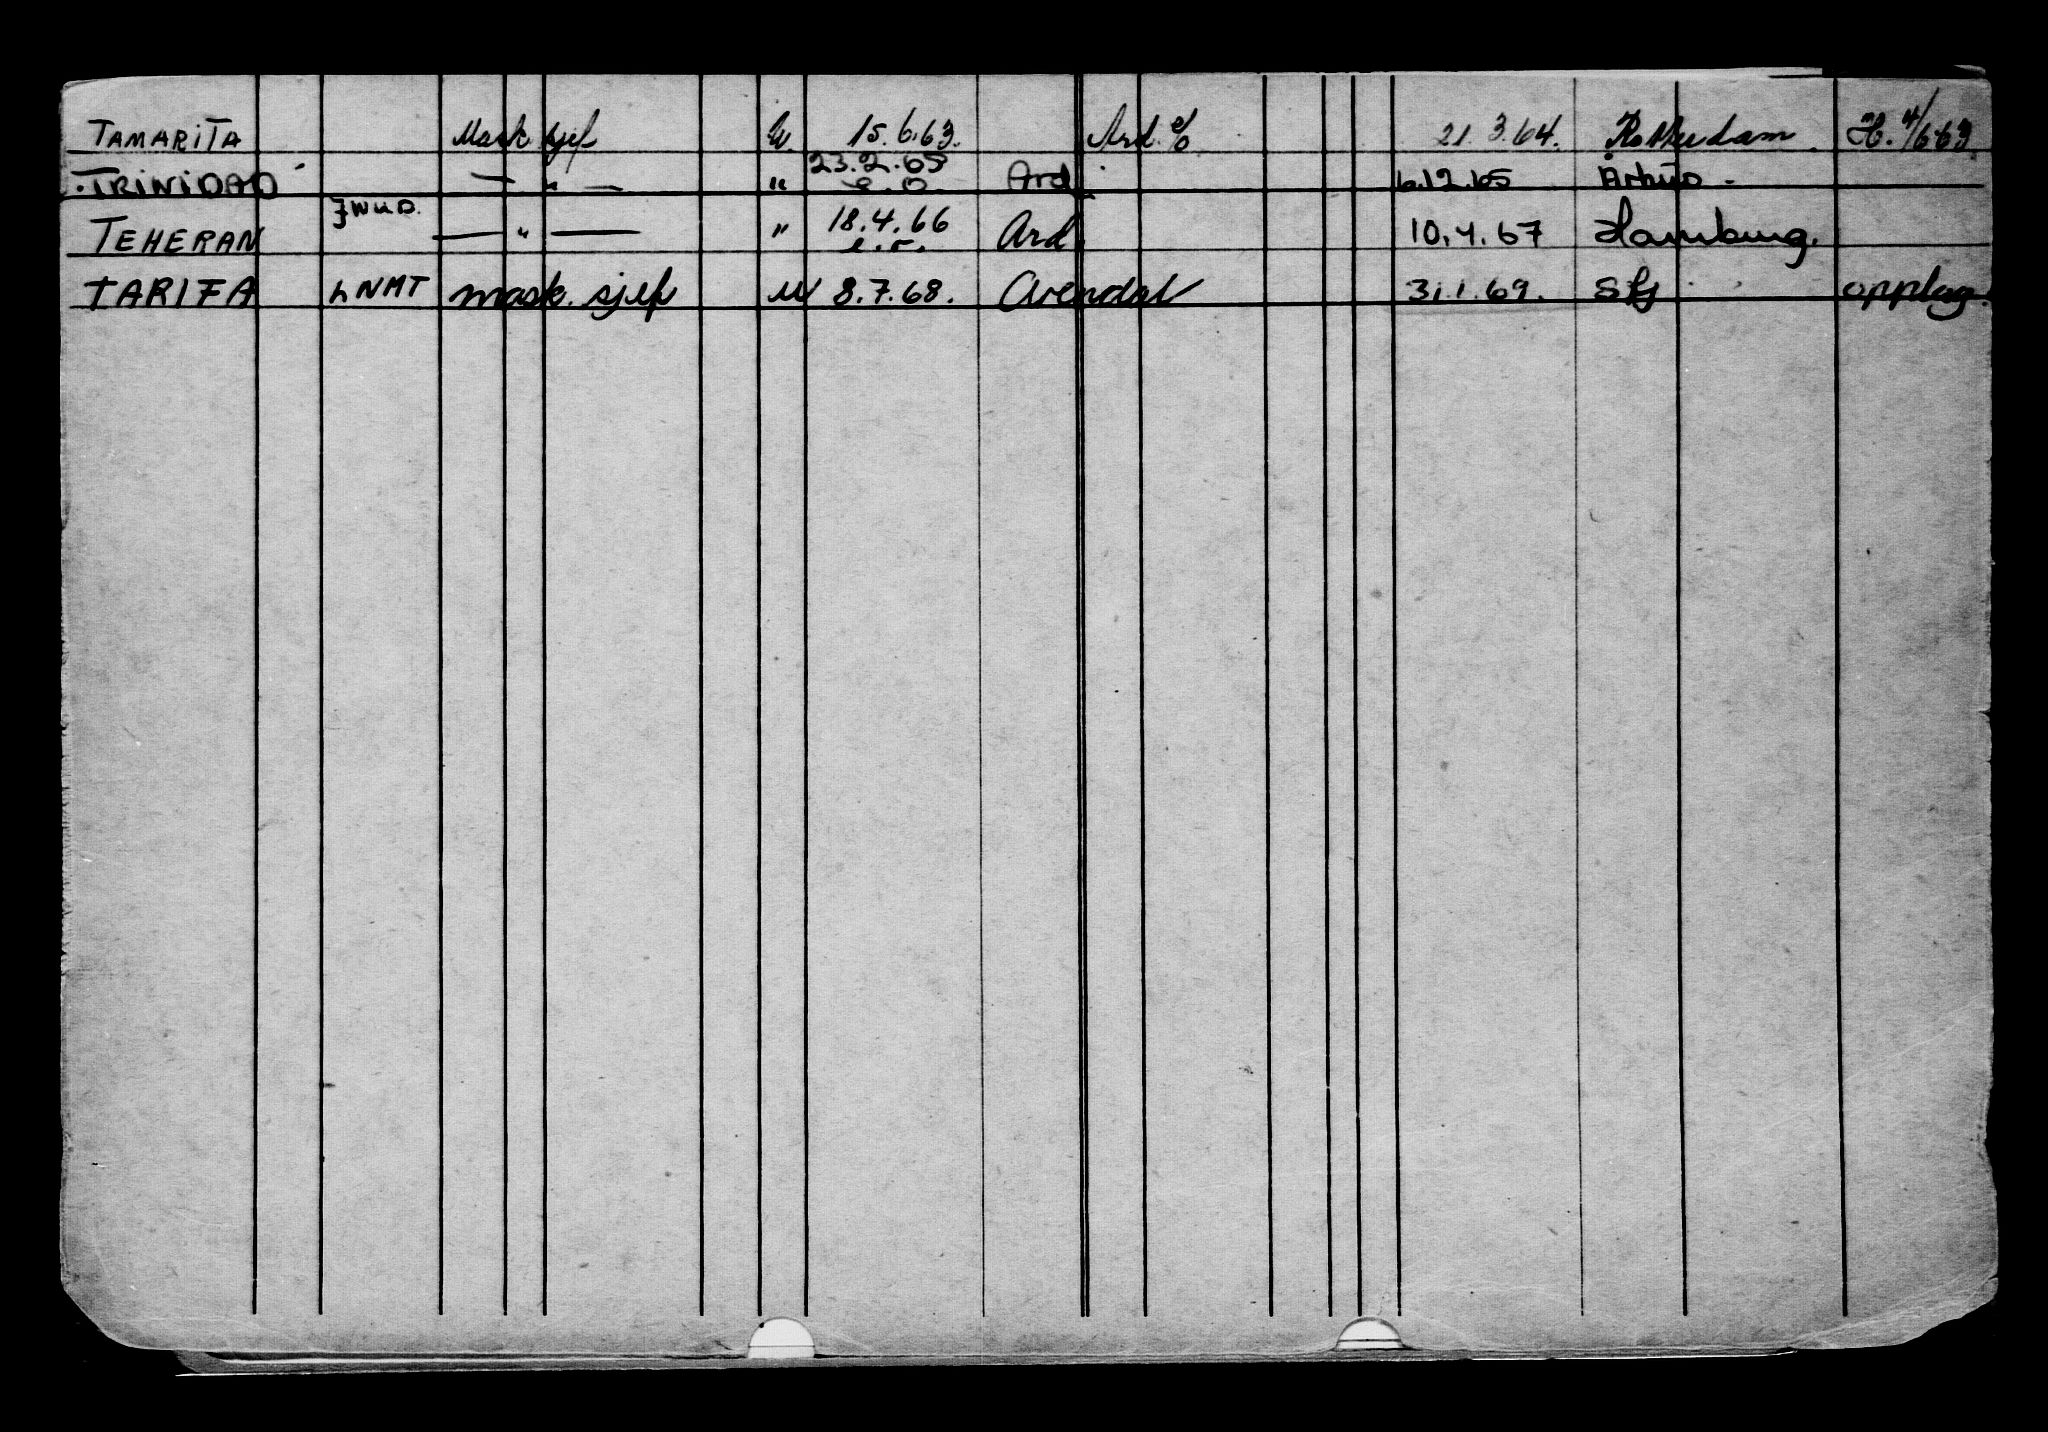 TAMARITA Mask. sjef U 15.6.63. Ard. 21.3.64. Rotterdam. 4/6 63.
TRINIDAD — " — " 23.2.65 Ard. 6.12.65 Århus.
TEHERAN — " — " 18.4.66 Ard 10.4.67 Hamburg.
TARIFA LNMT mask. sjef U 8.7.68. Arendal 31.1.69. Sfj opplag.